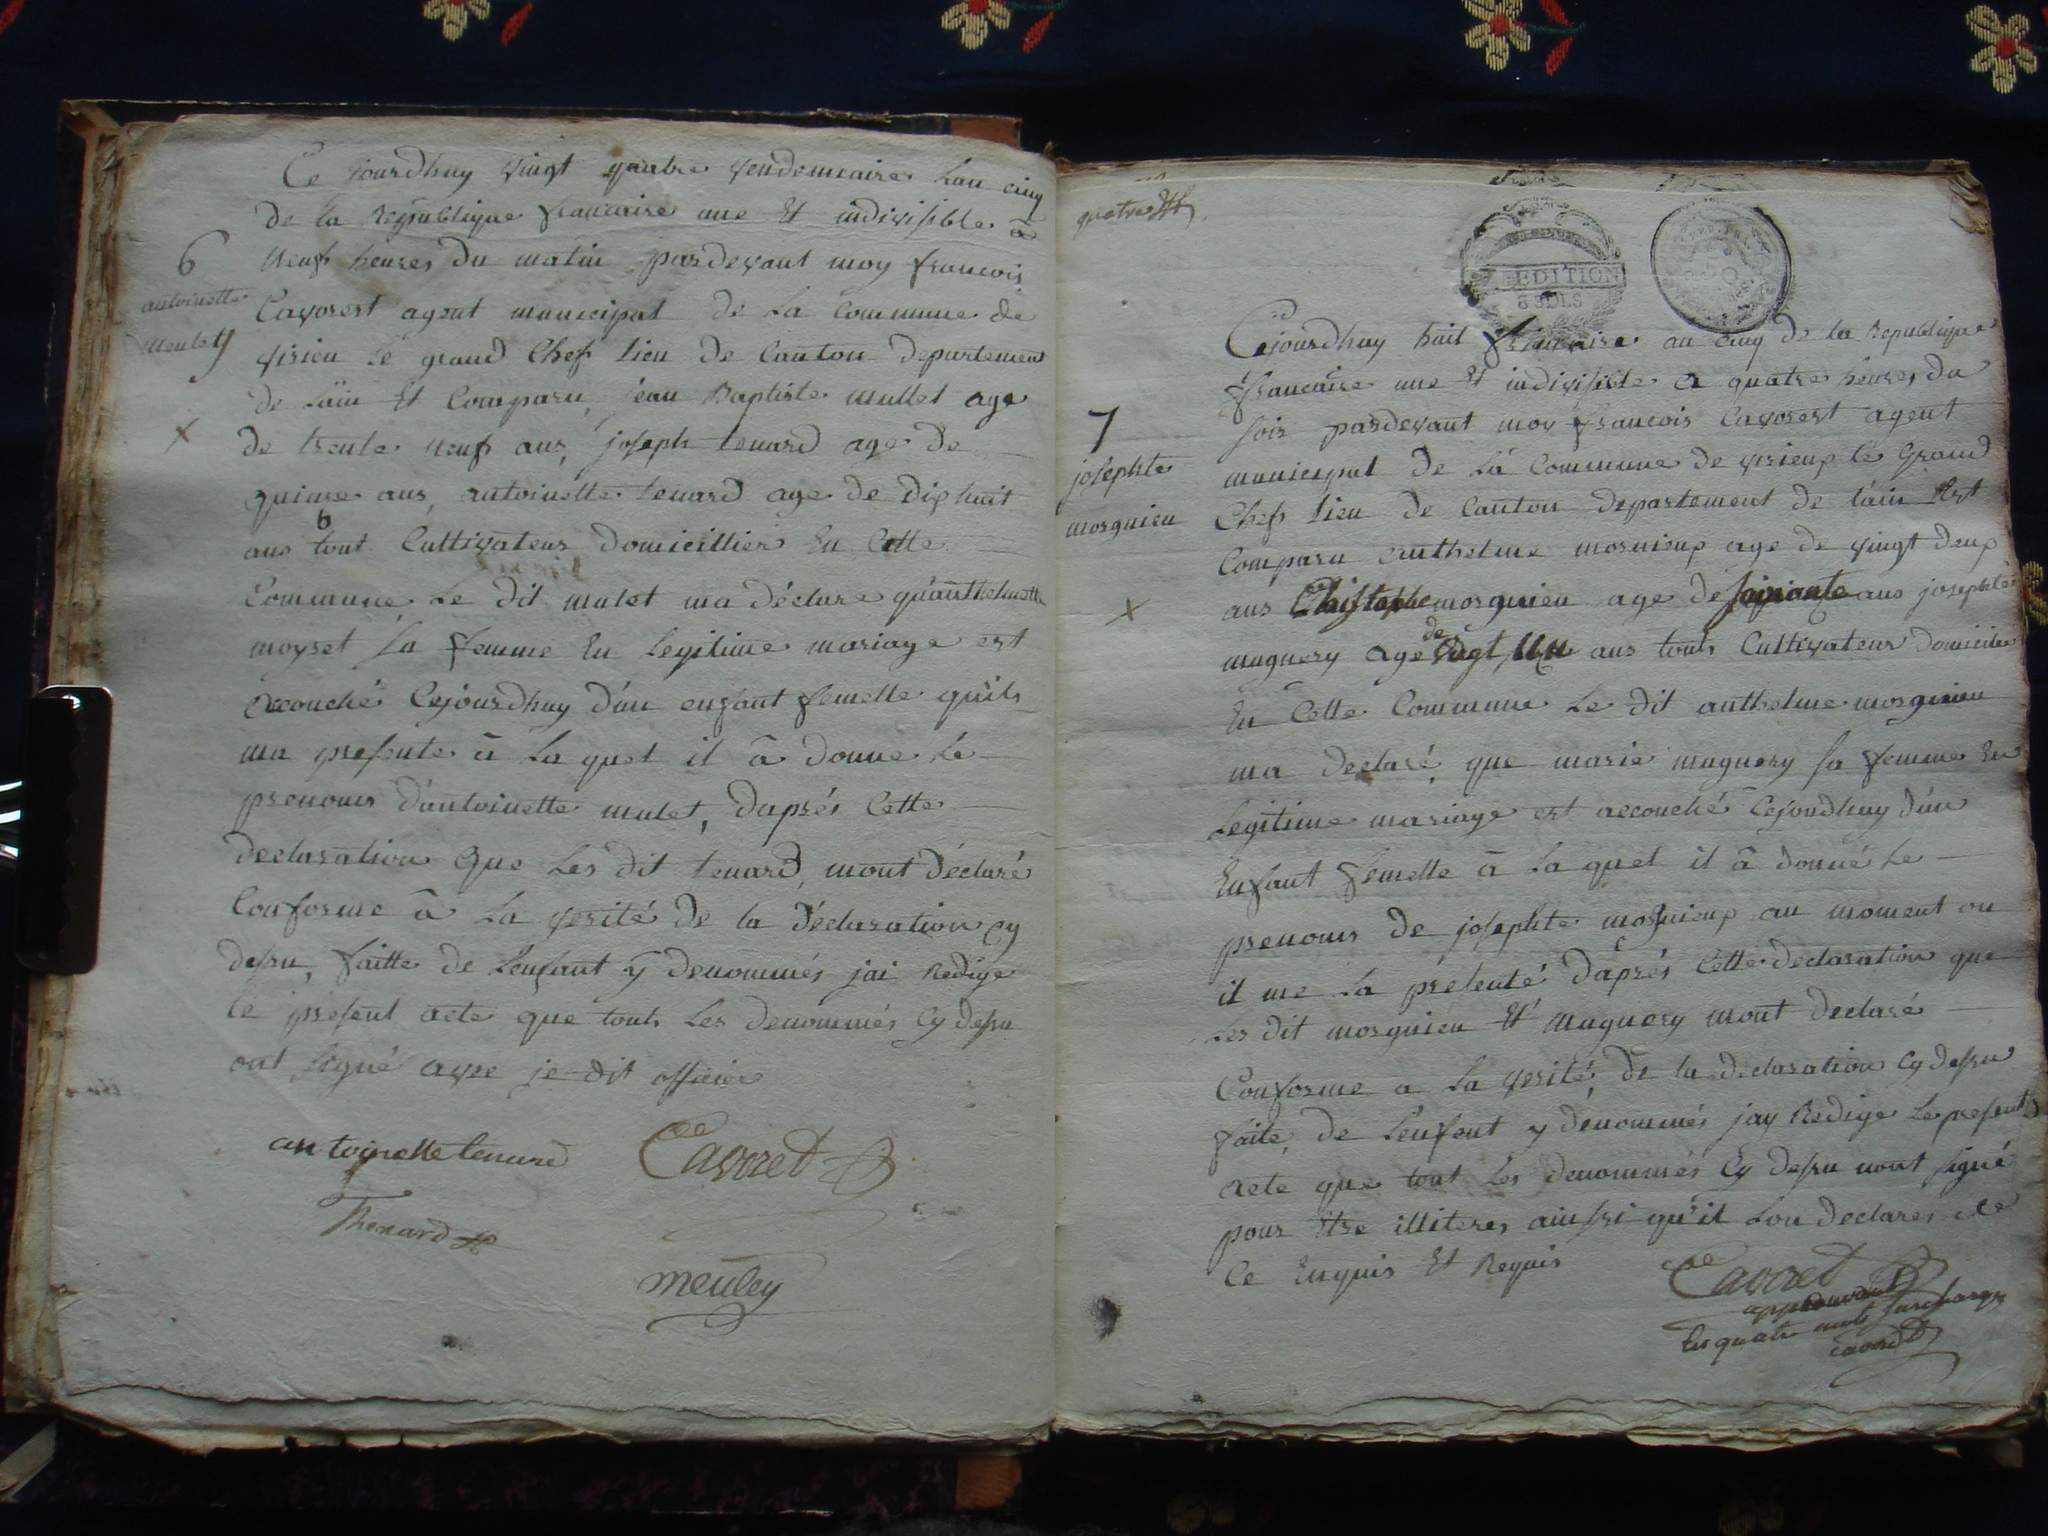 Ce jourdhuy vingt quatre vendemiaire lan cinq
de la Republique francaise une Et indivisible a
6
neuf heures du matin pardevant moy francois
antoinette
Cavorest agent municipal de La Commune de
meuley
virieu Le grand Chef lieu de Canton departement
de Lain Et Comparu, jean Baptiste mullet age
x
de trente neuf ans, joseph tenard age de
quinze ans, antoinette tenard age de dixhuit
ans tout Cultivateur domicillier En Cette
Commune Le dit mulet ma déclare quanthelmette
moyset sa femme En Legitime mariage est
accouché Cejourdhuy d'un enfant femelle quils
ma presente à La quel il â donne Le
prenoms d'antoinette mulet, daprés Cette
declaration que Les dit tenard, mont déclaré
Conforme â La verité de la déclaration cy
desu, faitte de Lenfant y denommés jai Redige
le present acte que touts Les denommés Cy desu
ont signé avec je dit officier
antoinette tenard Cavoret
Thenard
meuley
quatre
REDITION
8 SOLS
Cejourdhuy huit frimaire an cinq de la Republique
francaise une Et indivisible a quatre heures du
soir pardevant moy francois Cavorest agent
7
municipal de La Commune de virieux le Grand
josephte
Chef lieu de Canton departement de lain Est
morgnieu
Comparu anthelme mornieux age de vingt deux
x
ans Christophe morgnieu age de soixante ans josephte
de
mugnery age vingt un ans touts Cultivateur domicilie
En Cette Commune Le dit anthelme morgnieu
ma declaré, que marie mugnery sa femme En
Legitime mariage est accouché Cejourdhuy d'un
Enfant femelle â La quel il â donné Le
prenoms de josephte morgnieux au moment ou
il me La presenté d'aprés Cette declaration que
Les dit morgnieu Et mugnery mont declaré
Conforme a La verité, de la declaration Cy desu
faite, de Lenfent y denommés jay Redige Le present
acte que tout Les denommés Cy desu nont signé
pour Etre illiteres ainssi qu'il Lon declarés de
Ce Enquis Et Requis
Cavoret
approuvant
Les quatre mots surcharge
cavoret